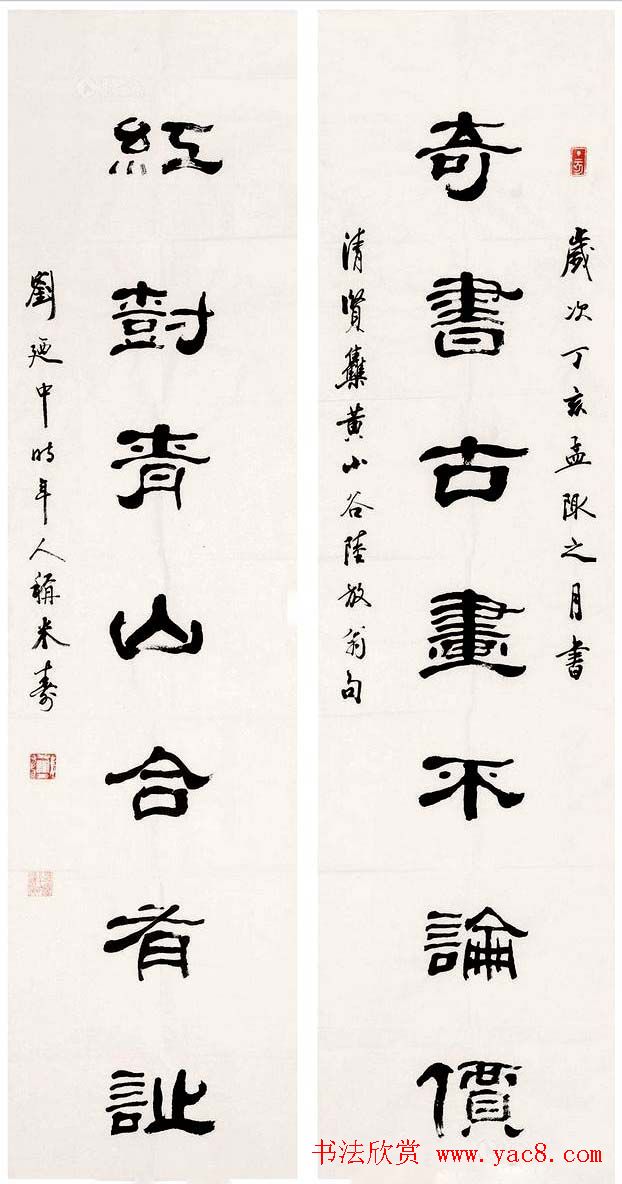 歲次丁亥孟陬之月書
奇書古畫不論價
清賢集黃小谷陸放翁句
紅樹青山合有詩
劉廼中時年人稱米壽
书法欣赏 www.yac8.com